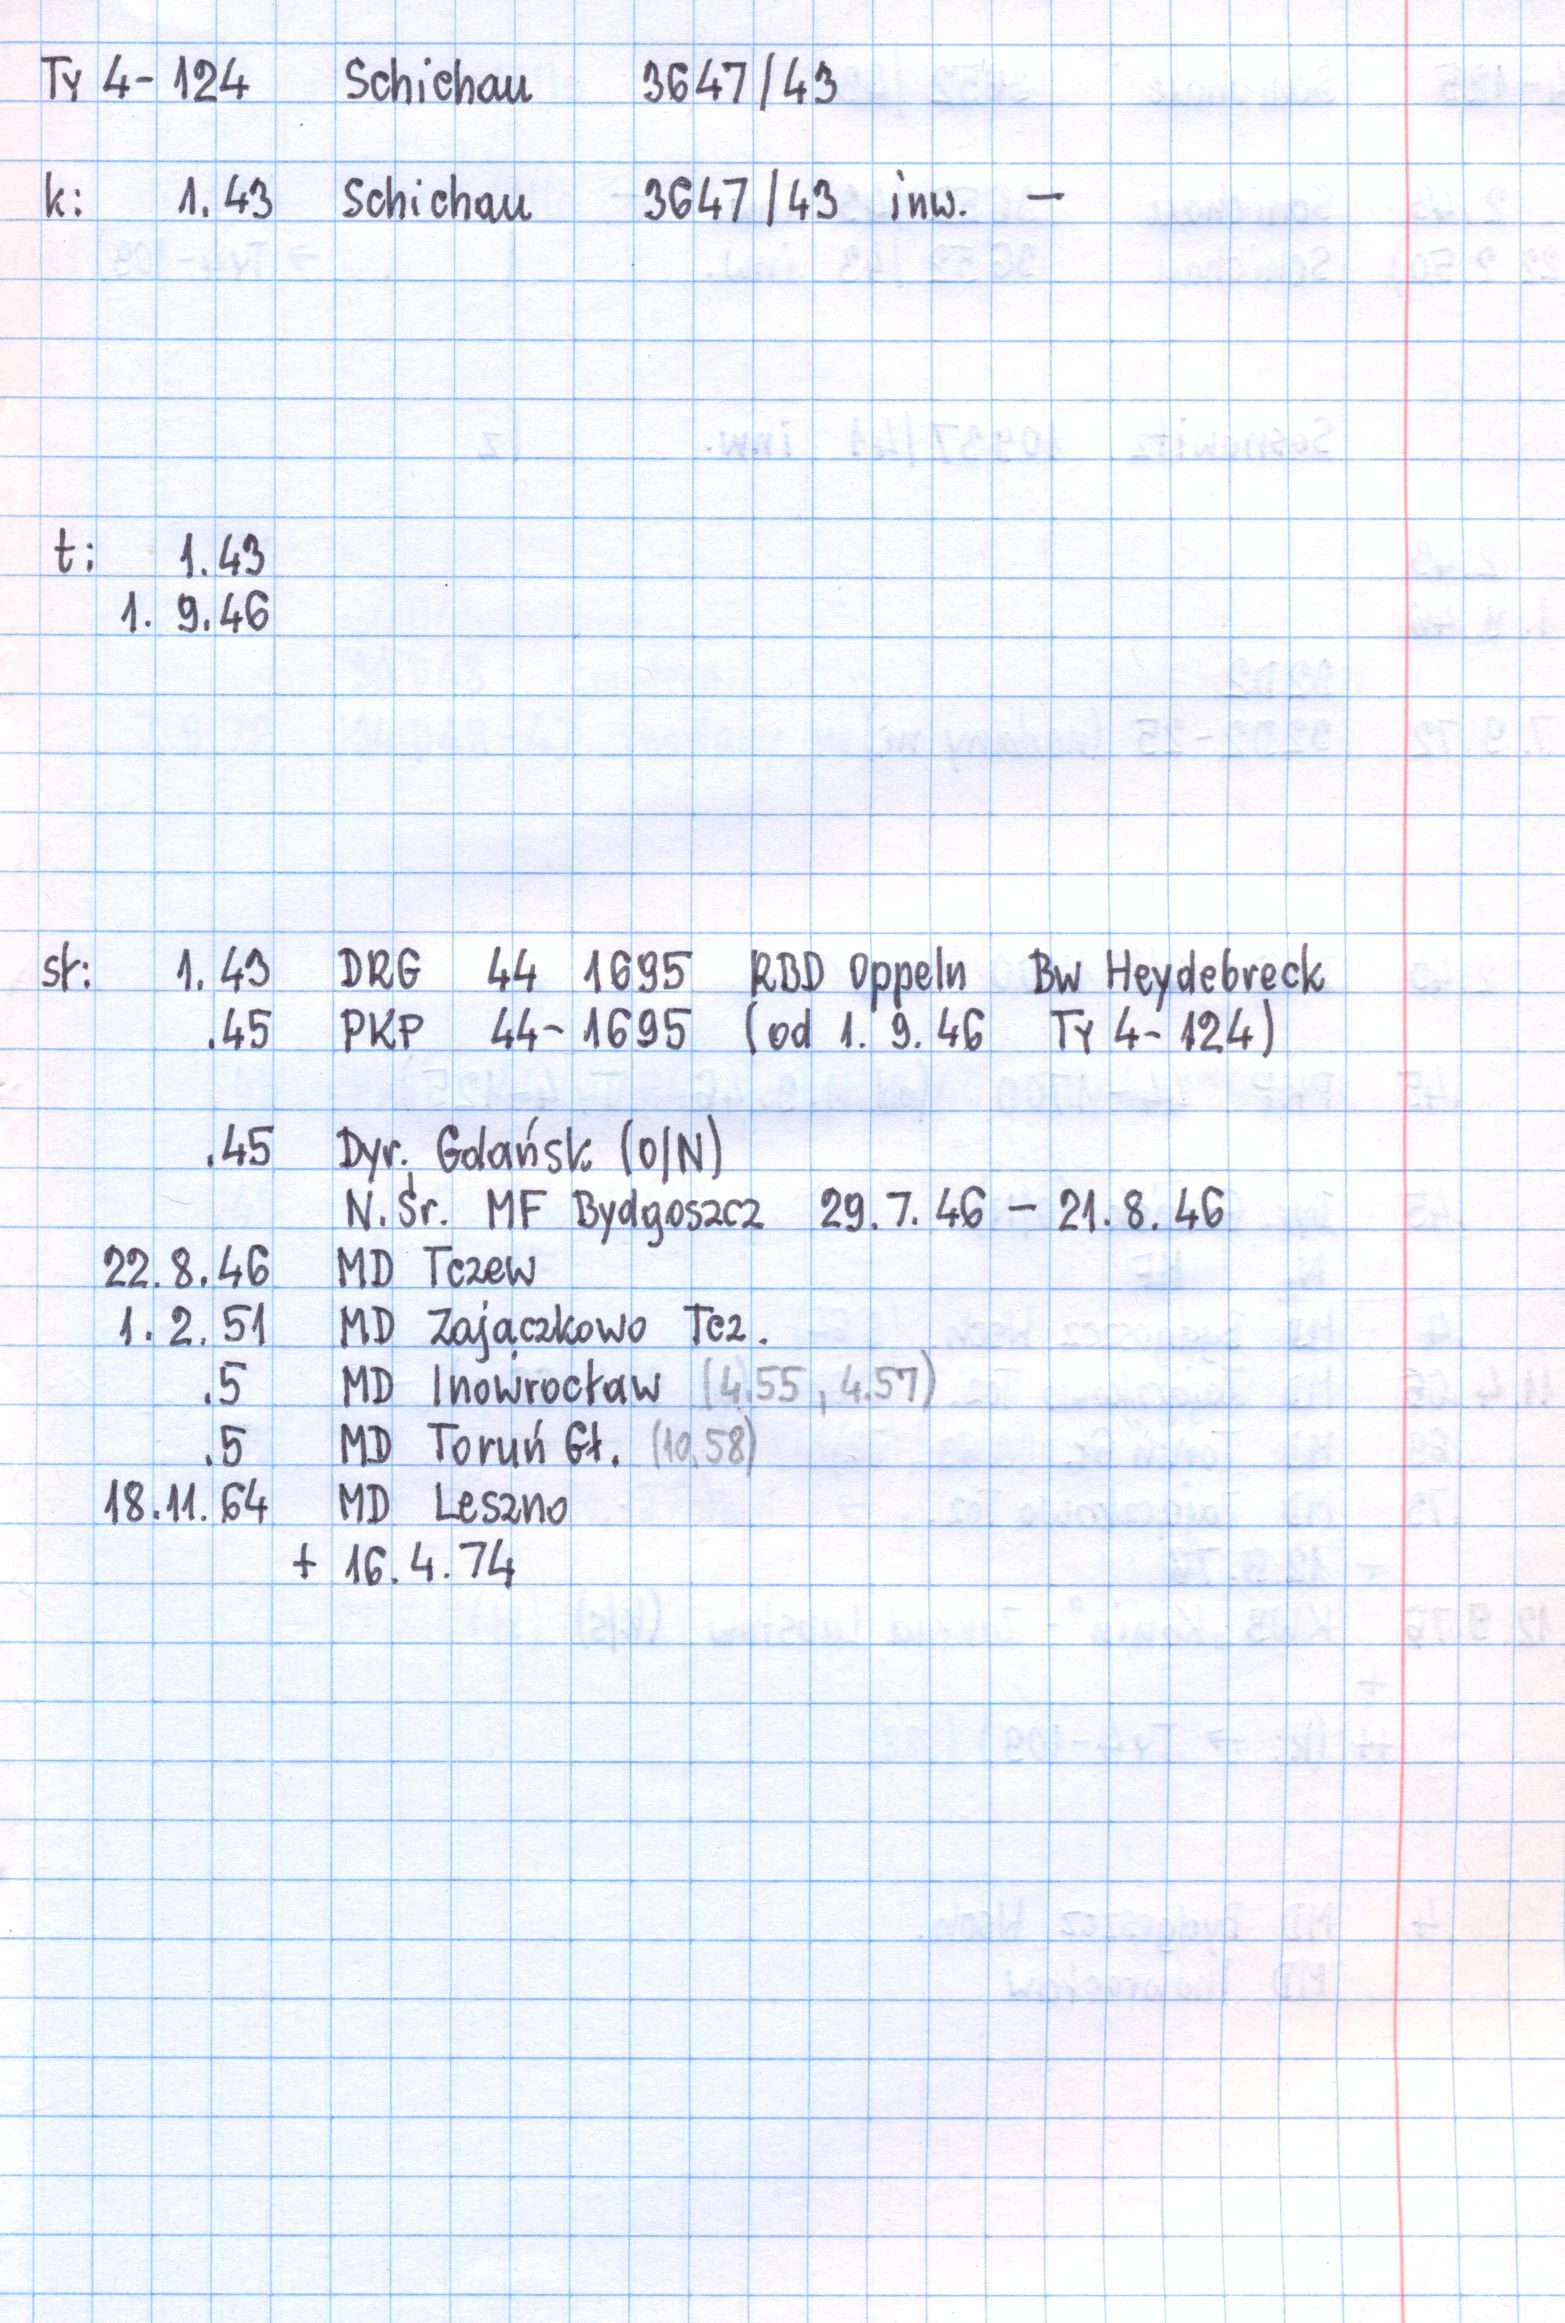 Ty 4-124 Schichau 3647/43
k: 1.43 Schichau 3647/43 inw. —
t: 1.43
1. 9.46
st: 1.43 DRG 44 1695 RBD Oppeln Bw Heydebreck
.45 PKP 44-1695 (od 1. 9. 46 Ty 4-124)
.45 Dyr. Gdańsk (O/N)
N.Śr. MF Bydgoszcz 29.7.46 – 21.8.46
22.8.46 MD Tczew
1.2.51 MD Zajączkowo Tcz.
.5 MD Inowrocław (4.55, 4.57)
.5 MD Toruń Gł. (10.58)
18.11.64 MD Leszno
+ 16.4.74